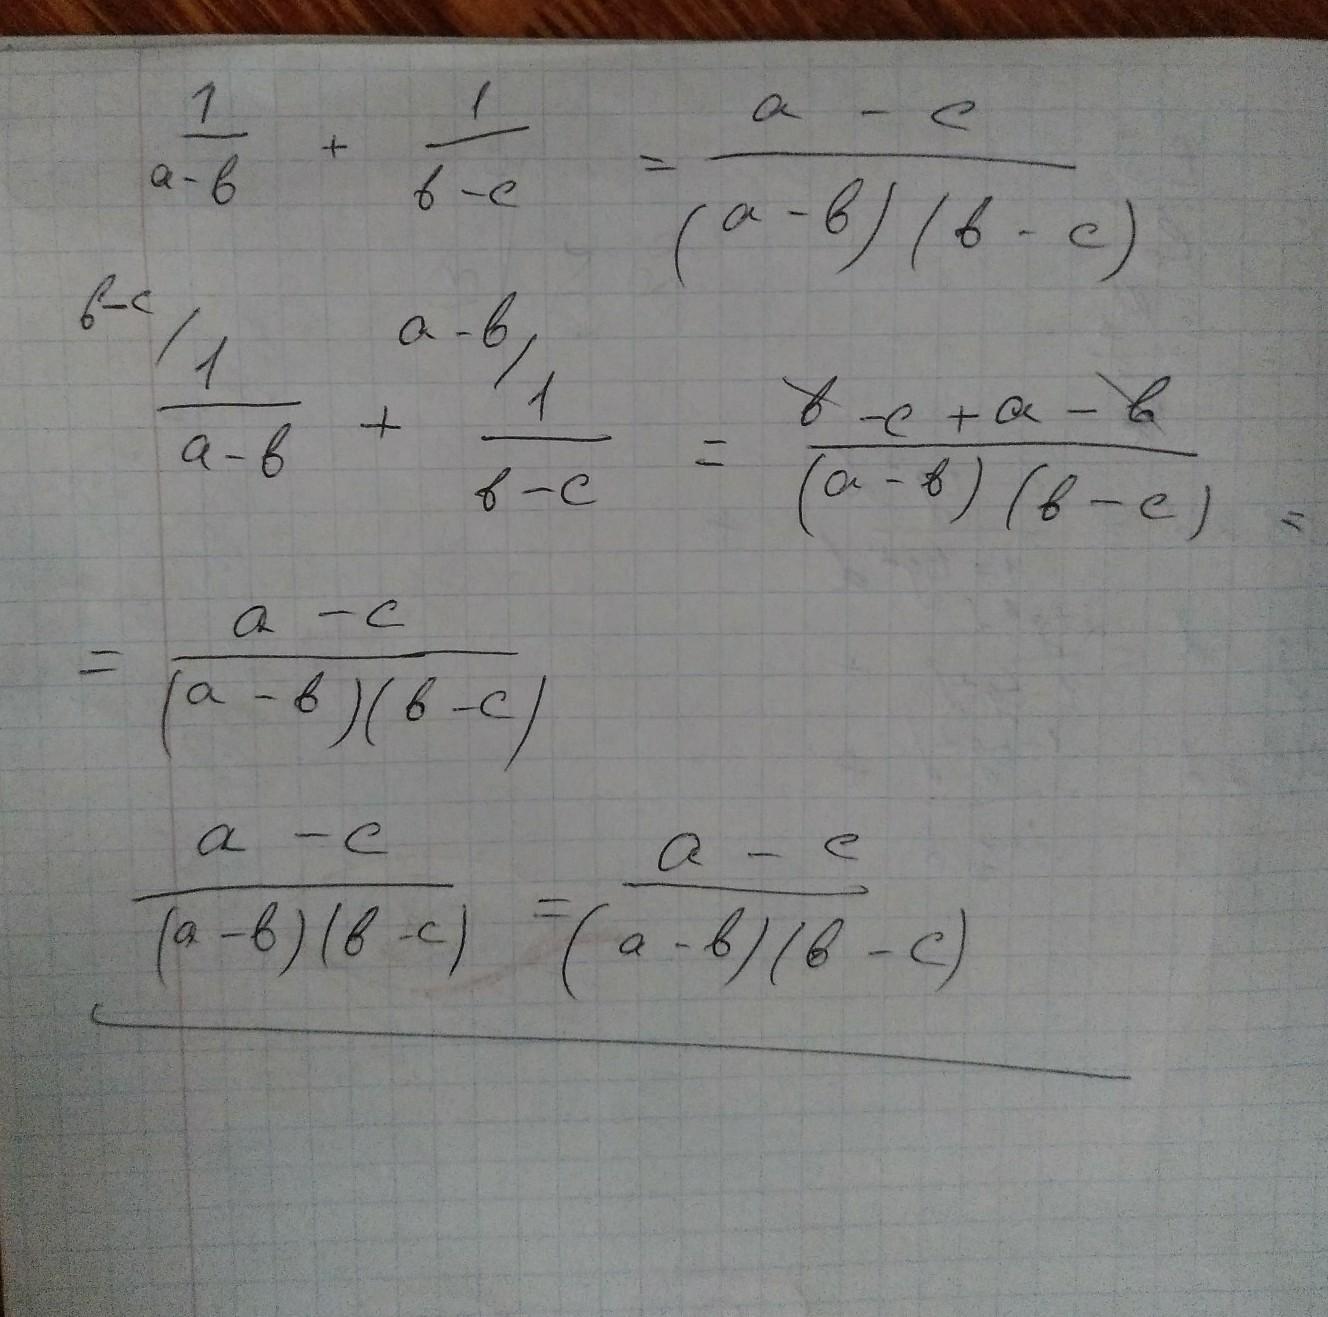 1/(a-b) + 1/(b-c) = (a - c)/((a - b)(b - c))
b-c/ 1/(a-b) + a-b/ 1/(b-c) = (b - c + a - b)/((a - b)(b - c)) =
= (a - c)/((a - b)(b - c))
(a - c)/((a - b)(b - c)) = (a - c)/((a - b)(b - c))